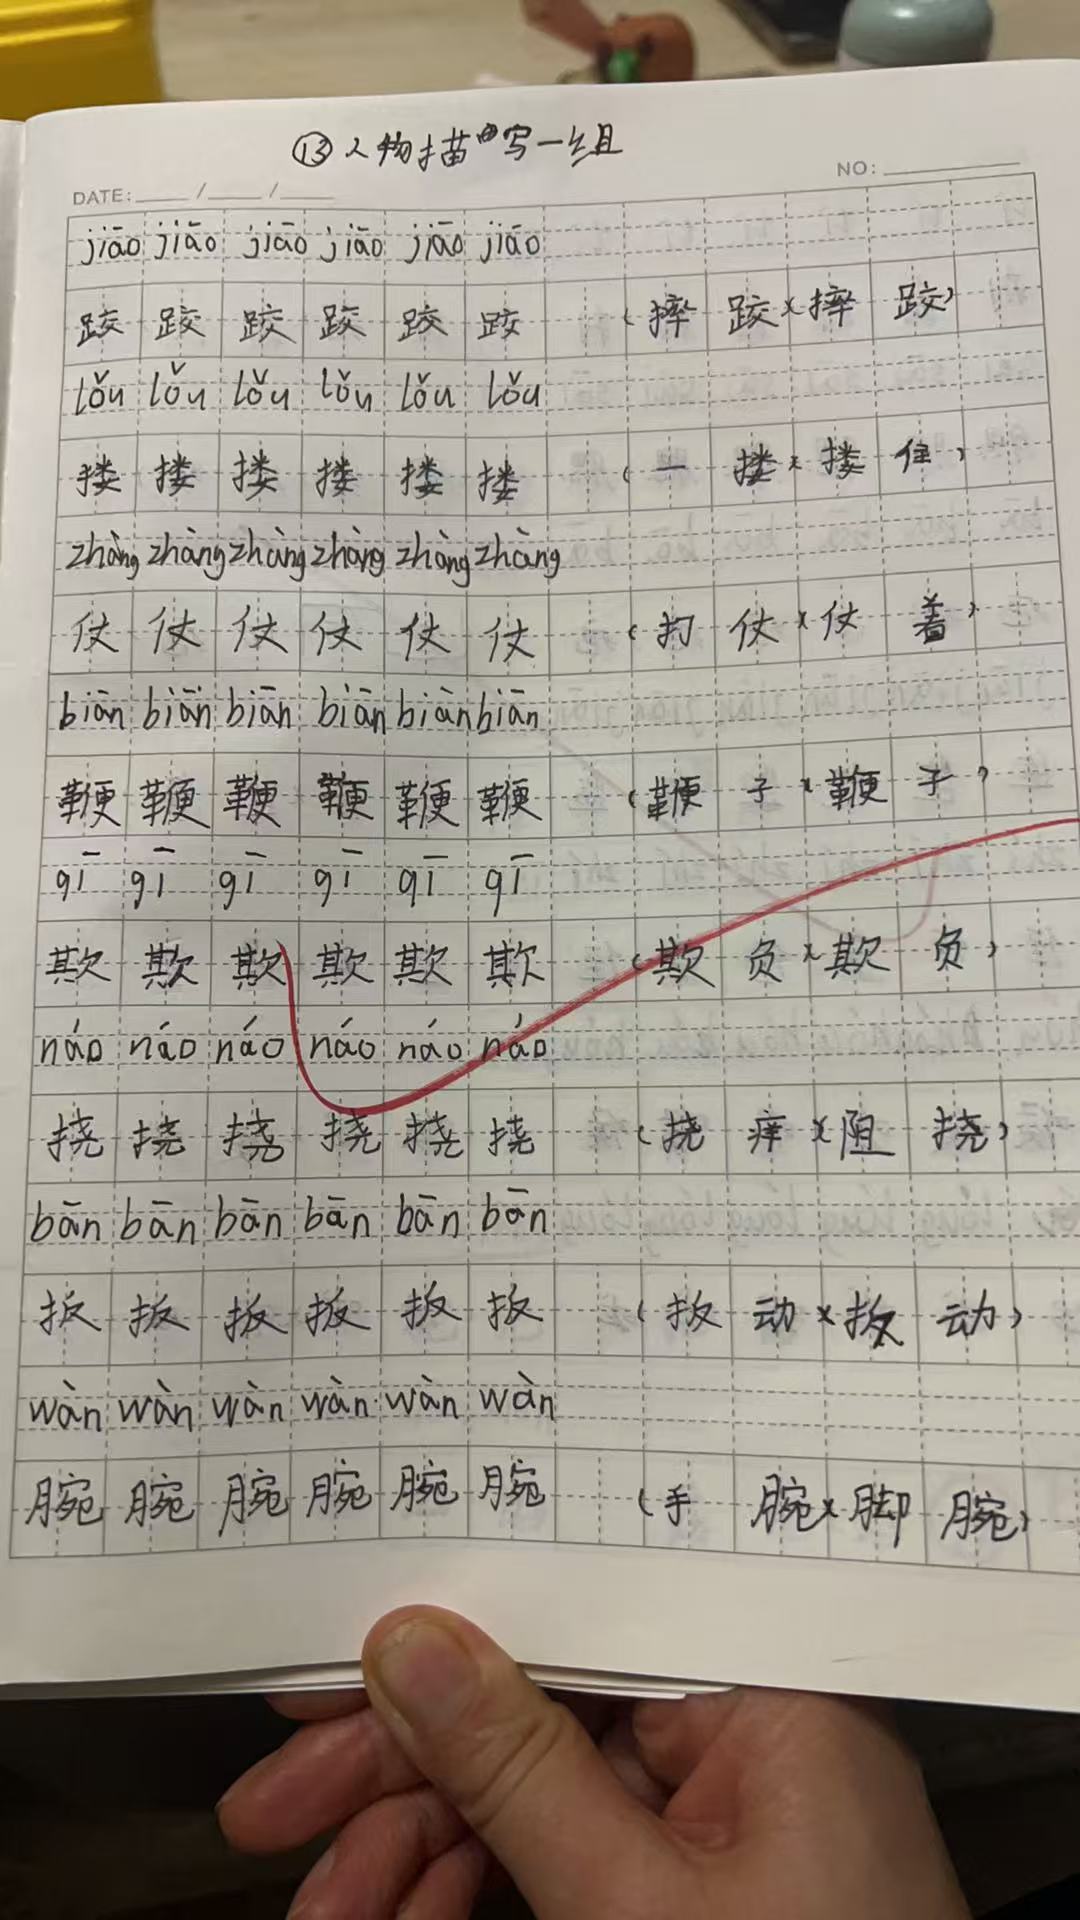 ⑬人物描写一组
DATE: / /
NO:
jiāo jiāo jiāo jiāo jiāo jiāo
跤 跤 跤 跤 跤 跤 (摔跤)(摔跤)
lǒu lǒu lǒu lǒu lǒu lǒu
搂 搂 搂 搂 搂 搂 (一搂)(搂住)
zhàng zhàng zhàng zhàng zhàng zhàng
仗 仗 仗 仗 仗 仗 (打仗)(仗着)
biān biān biān biān biān biān
鞭 鞭 鞭 鞭 鞭 鞭 (鞭子)(鞭子)
qī qī qī qī qī qī
欺 欺 欺 欺 欺 欺 (欺负)(欺负)
náo náo náo náo náo náo
挠 挠 挠 挠 挠 挠 (挠痒)(阻挠)
bān bān bān bān bān bān
扳 扳 扳 扳 扳 扳 (扳动)(扳动)
wàn wàn wàn wàn wàn wàn
腕 腕 腕 腕 腕 腕 (手腕)(脚腕)